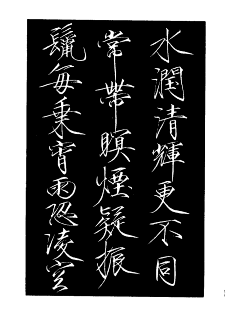 水潤清輝更不同
常帶暝煙疑振
鬣每乘宵雨恐凌空